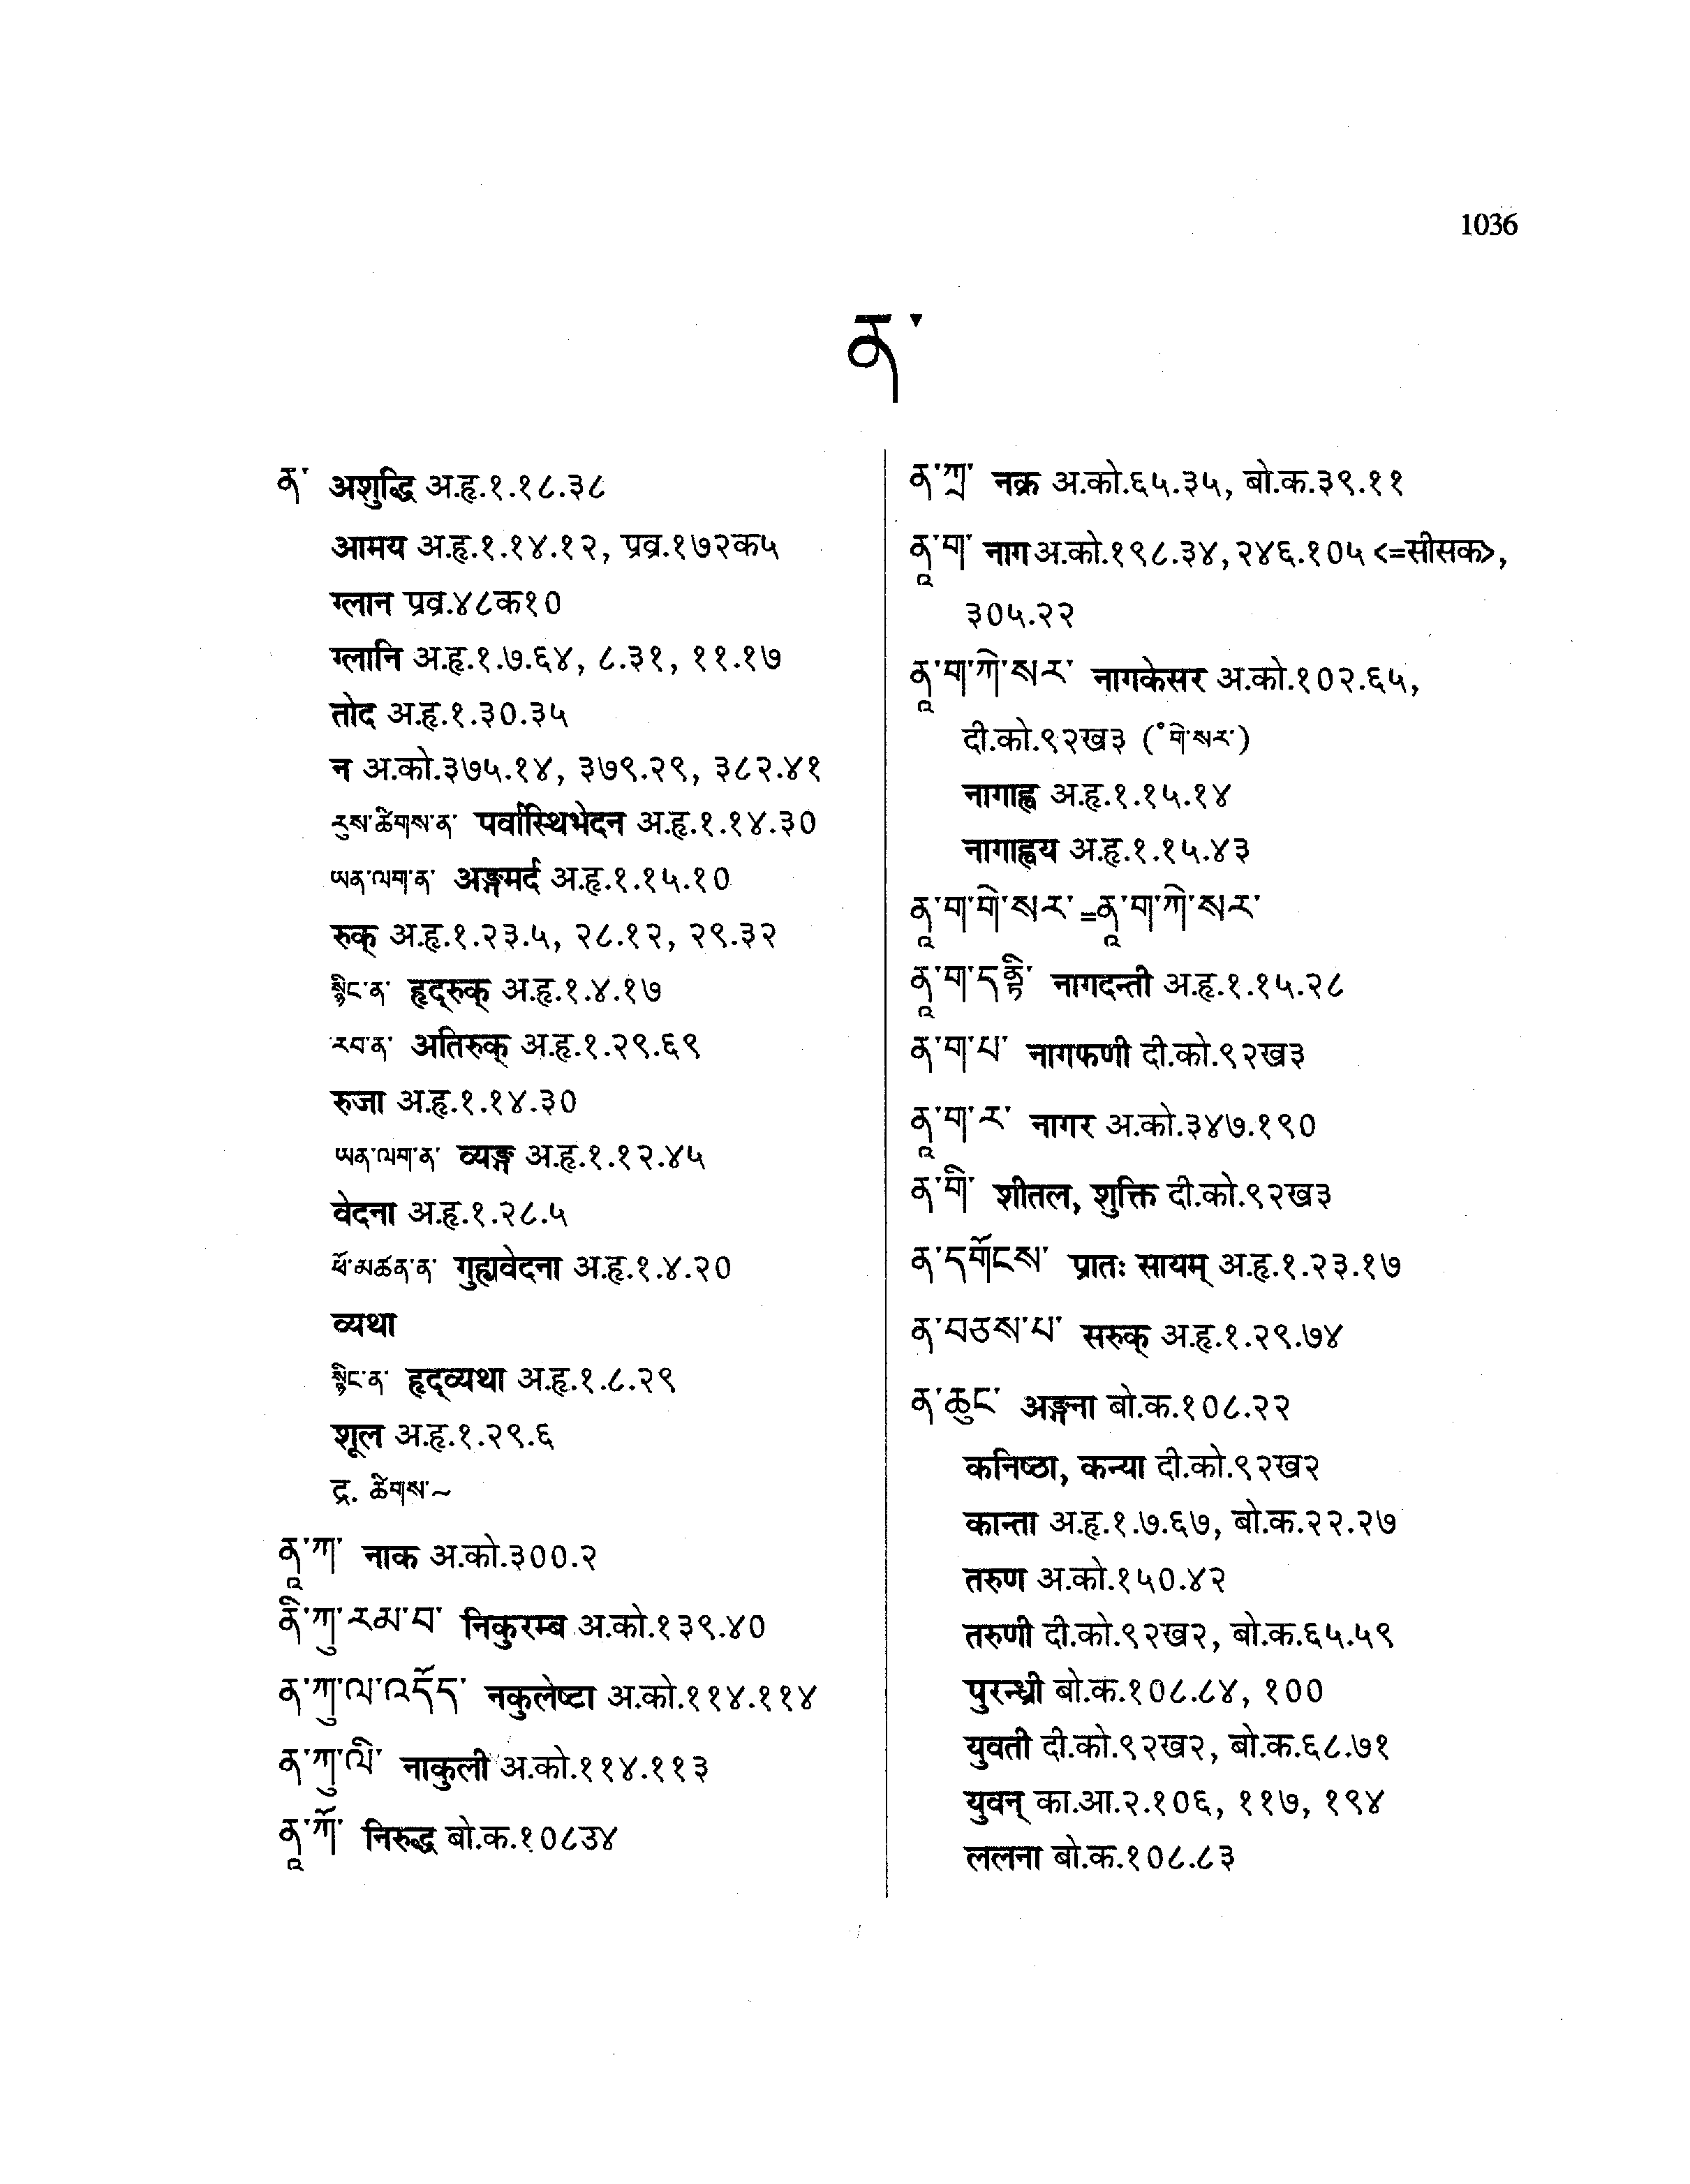 1036
ན་
ན་ अशुद्धि अ.हृ.१.१८.३८
आमय अ.हृ.१.१४.१२, प्रव्र.१७२क५
ग्लान प्रव्र.४८क१०
ग्लानि अ.हृ.१.७.६४, ८.३१, ११.१७
तोद अ.हृ.१.३०.३५
न अ.को.३७५.१४, ३७९.२९, ३८२.४१
རུས་ཚིགས་ན་ पर्वास्थिभेदन अ.हृ.१.१४.३०
ཡན་ལག་ན་ अङ्गमर्द अ.हृ.१.१५.१०
रुक् अ.हृ.१.२३.५, २८.१२, २९.३२
སྙིང་ན་ हृद्रुक् अ.हृ.१.४.१७
རབ་ན་ अतिरुक् अ.हृ.१.२९.६९
रुजा अ.हृ.१.१४.३०
ཡན་ལག་ན་ व्यङ्ग अ.हृ.१.१२.४५
वेदना अ.हृ.१.२८.५
ཕོ་མཚན་ན་ गुह्यवेदना अ.हृ.१.४.२०
व्यथा
སྙིང་ན་ हृद्व्यथा अ.हृ.१.८.२९
शूल अ.हृ.१.२९.६
द्र. ཚིགས་~
ནཱ་ཀ་ नाक अ.को.३००.२
ནི་ཀུ་རམ་བ་ निकुरम्ब अ.को.१३९.४०
ན་ཀུ་ལ་འདོད་ नकुलेष्टा अ.को.११४.११४
ན་ཀུ་ལི་ नाकुली अ.को.११४.११३
ནཱ་ཀོ་ निरुद्ध बो.क.१०८३४
ན་ཀྲ་ नक्र अ.को.६५.३५, बो.क.३९.११
ནཱ་ག་ नाग अ.को.१९८.३४, २४६.१०५ <=सीसक>,
३०५.२२
ནཱ་ག་ཀེ་སར་ नागकेसर अ.को.१०२.६५,
दी.को.९२ख३ (॰གེ་སར་)
नागाह्व अ.हृ.१.१५.१४
नागाह्वय अ.हृ.१.१५.४३
ནཱ་ག་གེ་སར་=ནཱ་ག་ཀེ་སར་
ནཱ་ག་དནྟི་ नागदन्ती अ.हृ.१.१५.२८
ན་ག་པ་ नागफणी दी.को.९२ख३
ནཱ་ག་ར་ नागर अ.को.३४७.१९०
ན་གི་ शीतल, शुक्ति दी.को.९२ख३
ན་དགོངས་ प्रातः सायम् अ.हृ.१.२३.१७
ན་བཅས་པ་ सरुक् अ.हृ.१.२९.७४
ན་ཆུང་ अङ्गना बो.क.१०८.२२
कनिष्ठा, कन्या दी.को.९२ख२
कान्ता अ.हृ.१.७.६७, बो.क.२२.२७
तरुण अ.को.१५०.४२
तरुणी दी.को.९२ख२, बो.क.६५.५९
पुरन्ध्री बो.क.१०८.८४, १००
युवती दी.को.९२ख२, बो.क.६८.७१
युवन् का.आ.२.१०६, ११७, १९४
ललना बो.क.१०८.८३